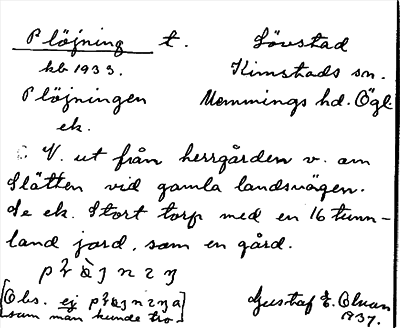 Plöjning t. Lövstad
kb 1933. Kimstads sn.
Plöjningen Memmings hd. Ögl
ek.
V. ut från herrgården v. om
Slätten vid gamla landsvägen.
Se ek. Stort torp med en 16 tunn-
land jord, som en gård.
[Obs. ej
Gustaf E. Olvan
som man kunde tro.] 1937.